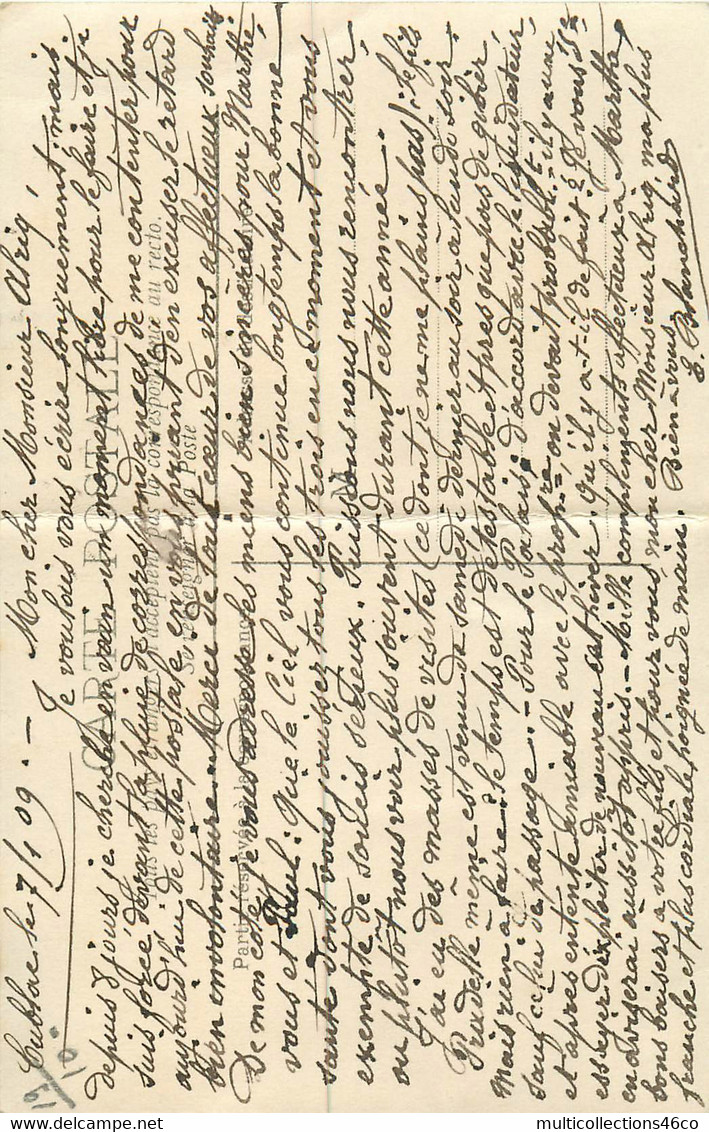 Cublac le 7/1 09. — Mon cher Monsieur Alrig,
Je voulais vous écrire longuement, mais
depuis 8 jours je cherche en vain un moment libre pour le faire et je
suis forcé devant la pluie de correspondances de me contenter pour
aujourd'hui de cette postale en vous priant d'en excuser le retard
bien involontaire. Merci de tout cœur de vos affectueux souhaits
De mon côté je vous adresse les miens bien sincères pour Marthe,
vous et Paul: Que le Ciel vous continue longtemps la bonne
santé dont vous jouissez tous les trois en ce moment et vous
exempte de soucis sérieux. Puissions nous nous rencontrer,
ou plutôt nous voir plus souvent durant cette année.
J'ai eu des masses de visites (ce dont je ne me plains pas); le fils
Prudelle même est venu de samedi dernier au soir à lundi soir.
Mais rien à faire: le temps est détestable et presque pas de gibier,
sauf celui de passage. — Pour le Palais: d'accord avec le liquidateur,
et après entente amiable avec le propre, on devait probablt, il y a un an,
essayer d'exploiter de nouveau cet hiver. Qu'il y a-t-il de fait? Je vous
en aviserai aussitôt appris. — Mille compliments affectueux à Marthe,
bons baisers à votre fils et pour vous, mon cher Monsieur Alrig, ma plus
franche et plus cordiale poignée de main. Bien à vous
E. Blanchard
19/10
CARTE POSTALE
Tous les pays étrangers n'acceptent pas la correspondance au recto.
Se renseigner à la Poste
Partie réservée à la correspondance
multicollections46co